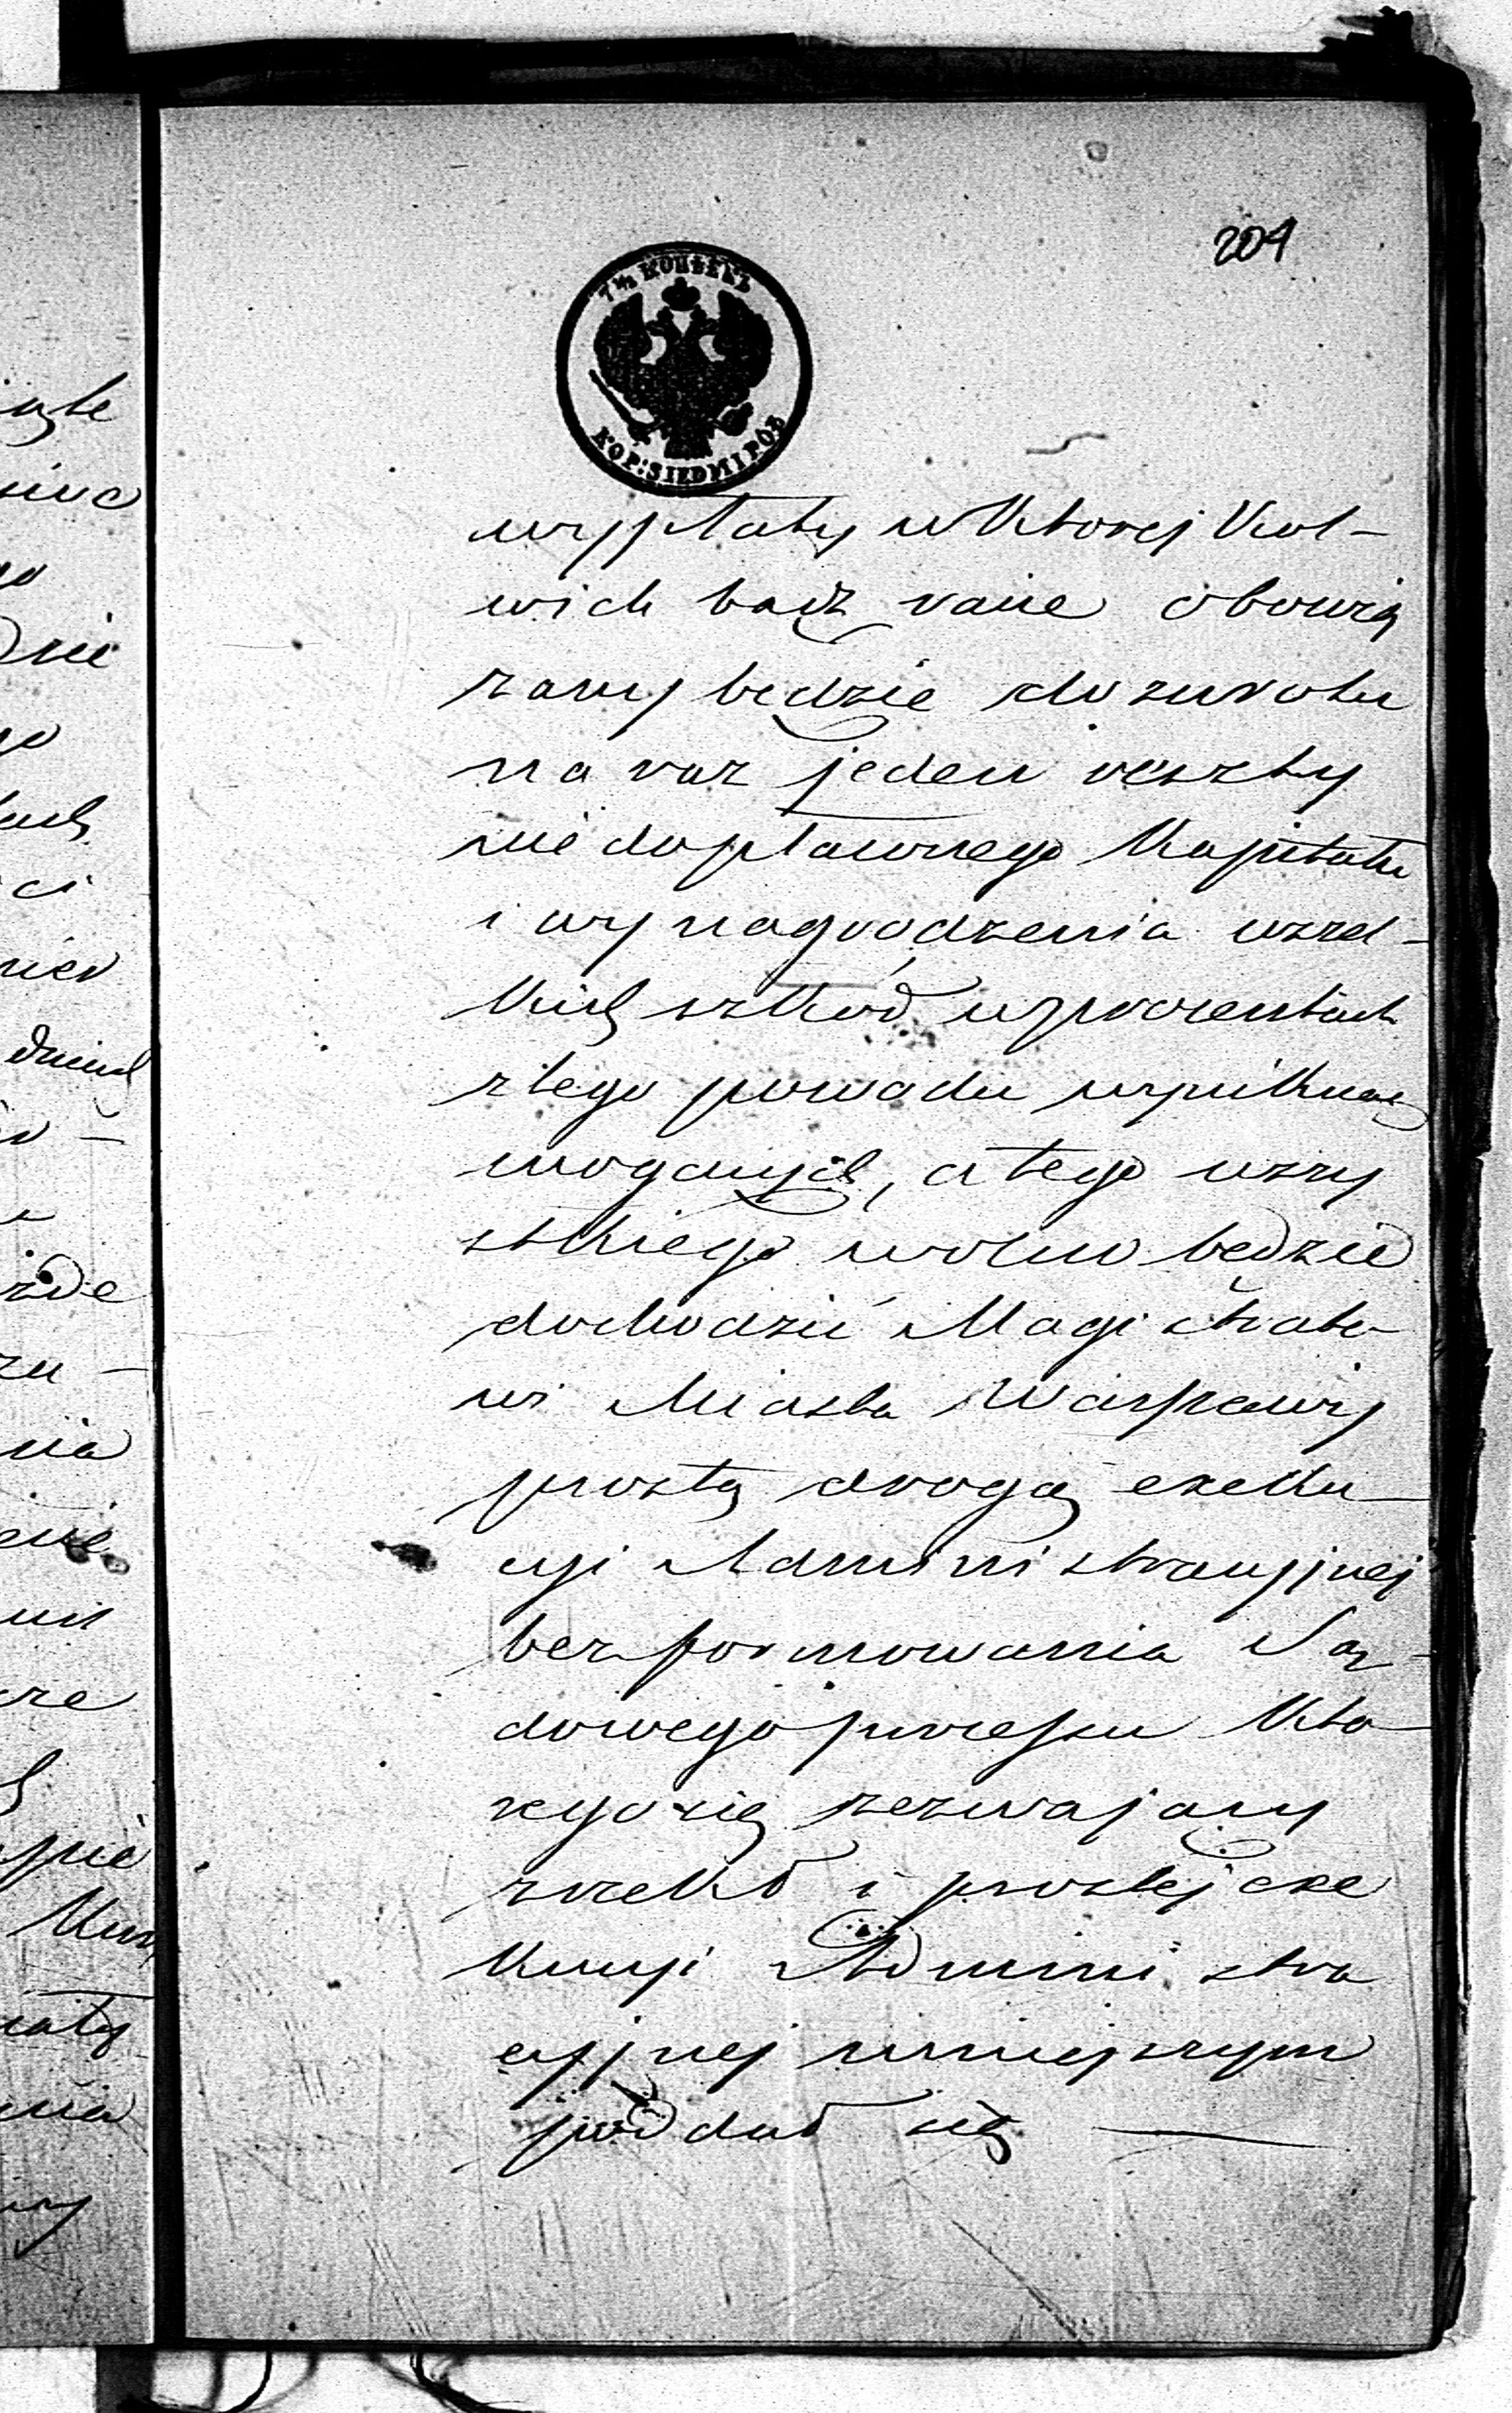 204
7 1/2 КОПѢЕКЪ
KOP: SIEDM I PÓŁ
wypłaty w Ktorej Kol-
wiek bądz racie obowią
zany będzie do zwrotu
na raz jeden reszty
niedopłaconego Kapitału
i wynagrodzenia wszel-
kich szkód w procentach
z tego powodu wyniknąć
mogących, a tego wszy
stkiego wolno będzie
dochodzić Magistrato-
wi Miasta Warszawy
prostą drogą exeku-
cyi Administracyjnej
bez formowania Są-
dowego processu Któ-
rego się zeznający
zrzekł i prostej exe
kucyi Administra
cyjnej niniejszym
poddał się